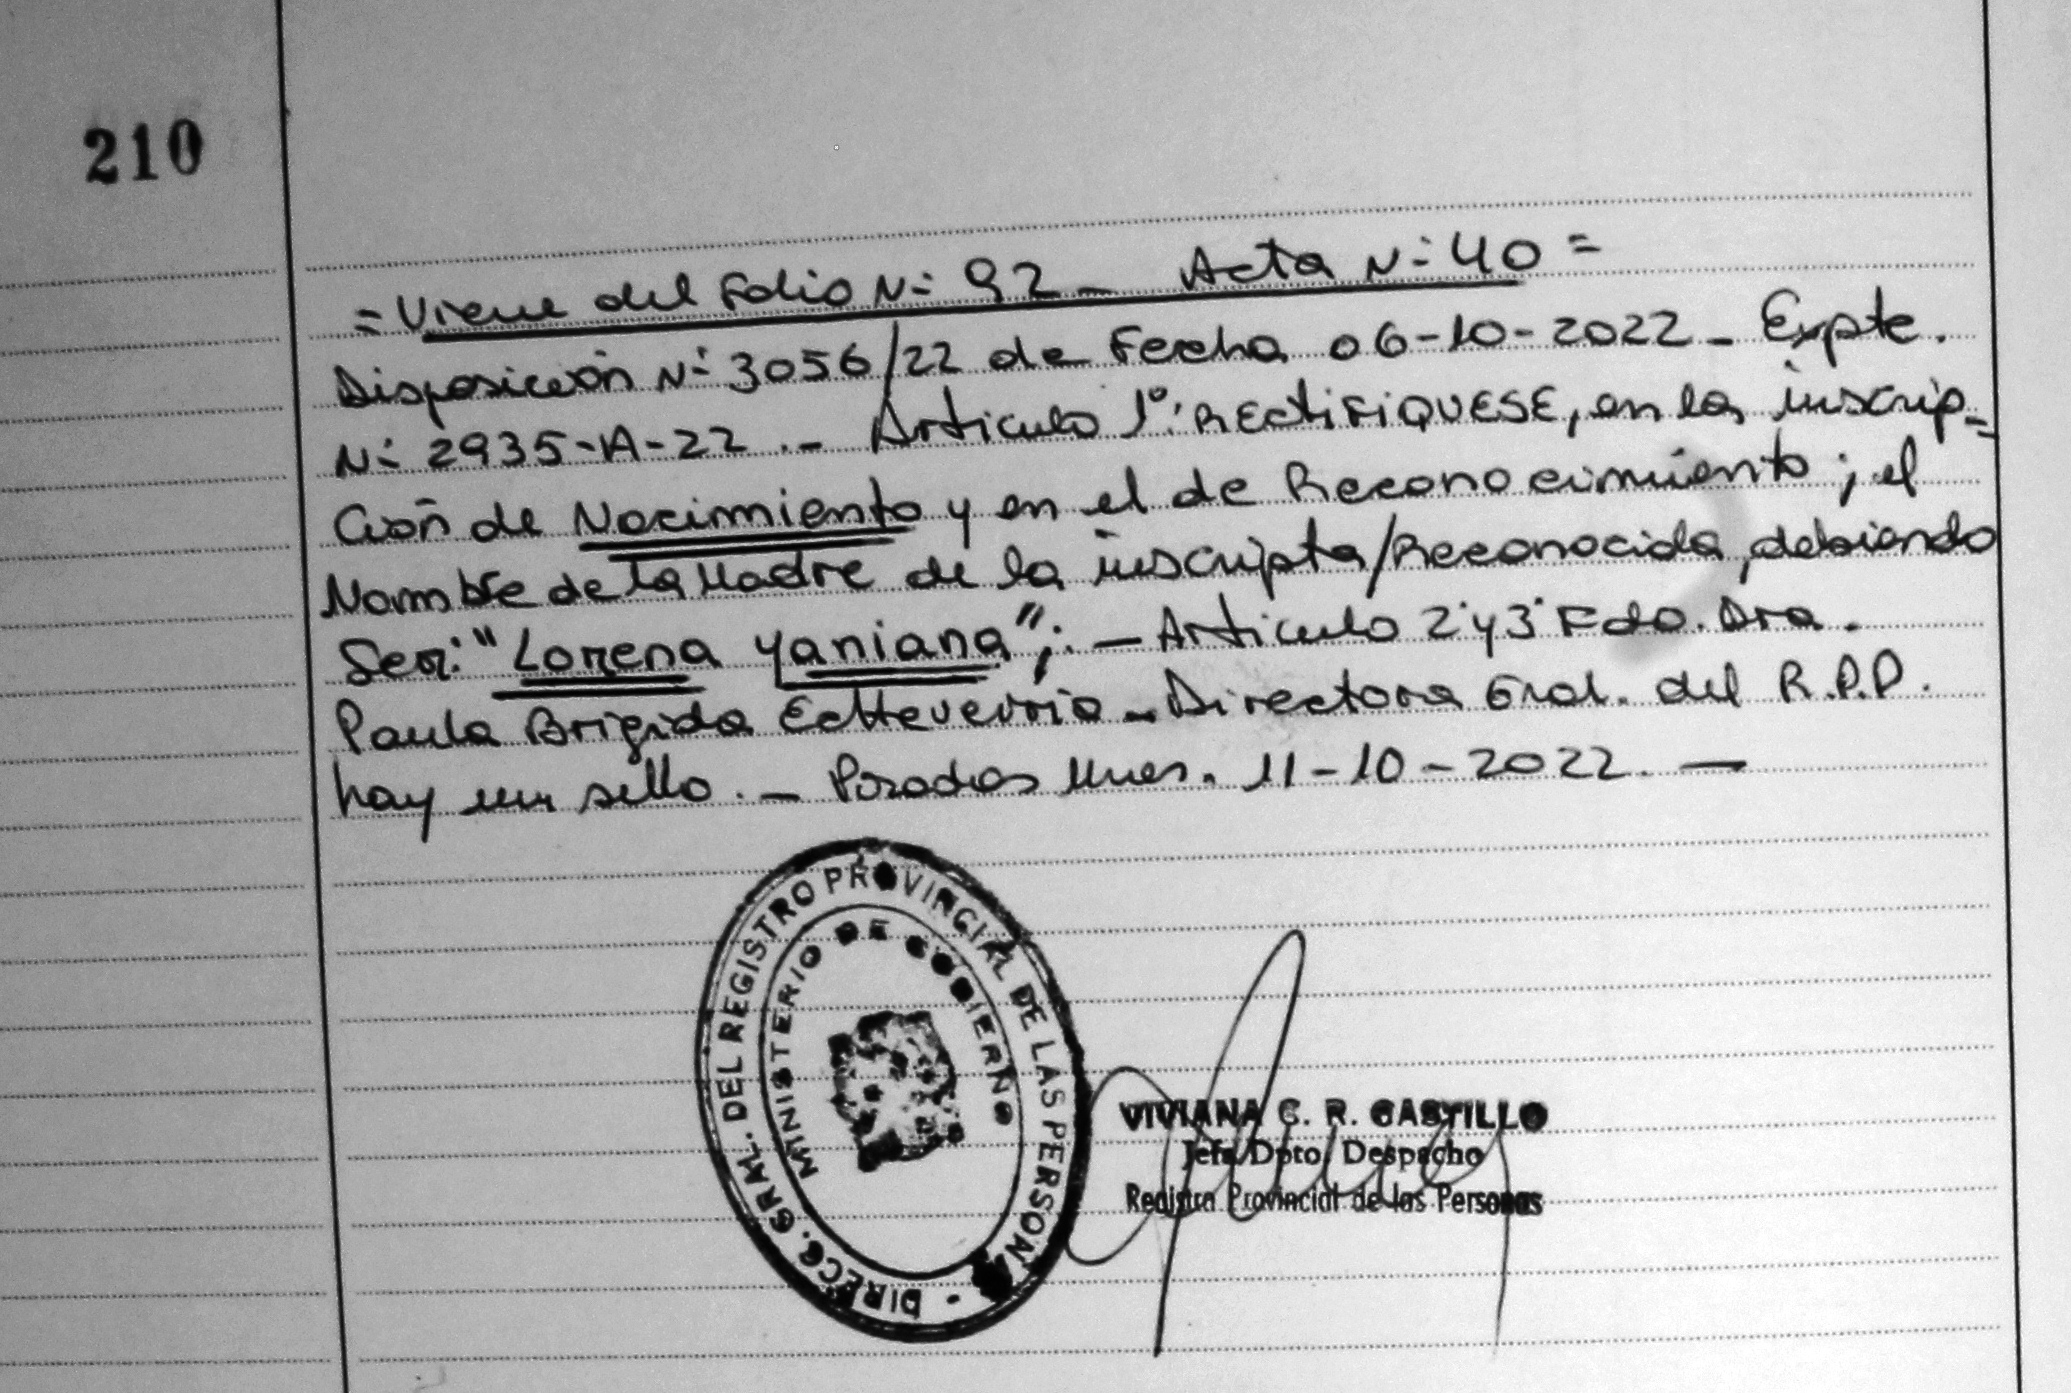 210
= Viene del Folio N: 92 - Acta N: 40 =
Disposición N: 3056/22 de Fecha 06-10-2022 - Expte.
N: 2935-A-22. - Articulo 1°: RECTIFIQUESE, en la inscrip-
ción de Nacimiento y en el de Reconocimiento; el
Nombre de la Madre de la inscripta/Reconocida, debiendo
Ser: "Lorena Yaniana";. - Articulo 2° y 3° Fdo. Dra.
Paula Brigida Echteverria - Directora Gral. del R.P.P.
hay un sello. - Posadas Mnes. 11-10-2022. -
DIRECC. GRAL. DEL REGISTRO PROVINCIAL DE LAS PERSONAS -
MINISTERIO DE GOBIERNO
VIVIANA C. R. CASTILLO
Jefa Dpto. Despacho
Registro Provincial de las Personas